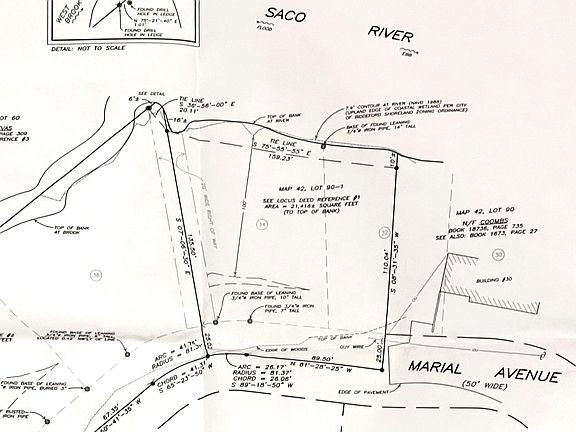 WEST
BROOK
FOUND DRILL
HOLE IN LEDGE
N 75°-21'-40" E
1.01'
FOUND DRILL
HOLE IN LEDGE
DETAIL: NOT TO SCALE
SACO RIVER
FLOOD
EBB
SEE DETAIL
6'±
TIE LINE
S 36°-56'-00" E
20.11'
16'±
TOP OF BANK
AT RIVER
7.6' CONTOUR AT RIVER (NAVD 1988)
(UPLAND EDGE OF COASTAL WETLAND PER CITY
OF BIDDEFORD SHORELAND ZONING ORDINANCE)
BASE OF FOUND LEANING
3/4"ø IRON PIPE, 14" TALL
TIE LINE
S 75°-55'-55" E
159.23'
10'±
LOT 60
PAGE 309
REFERENCE #3
MAP 42, LOT 90-1
SEE LOCUS DEED REFERENCE #1
AREA = 21,418± SQUARE FEET
(TO TOP OF BANK)
MAP 42, LOT 90
N/F COOMBS
BOOK 18736, PAGE 735
SEE ALSO: BOOK 1673, PAGE 27
TOP OF BANK
AT BROOK
25' WIDE RIGHT OF WAY
100'
S 07°-06'-30" E
135.50'
34
32
30
36
110.04'
S 08°-31'-35" W
BUILDING #30
FOUND BASE OF LEANING
3/4"ø IRON PIPE, 10" TALL
FOUND 3/4"ø IRON
PIPE, 7" TALL
TOP OF BANK
EDGE OF WOODS
GUY WIRE
25.02'
25.00'
89.50'
N 81°-28'-25" W
ARC = 41.76'
RADIUS = 81.37'
CHORD = 41.31'
S 65°-23'-50" W
ARC = 26.17'
RADIUS = 81.37'
CHORD = 26.06'
S 89°-18'-50" W
MARIAL AVENUE
(50' WIDE)
EDGE OF PAVEMENT
FOUND BASE OF LEANING
IRON PIPE, BURIED 3"
67.35'